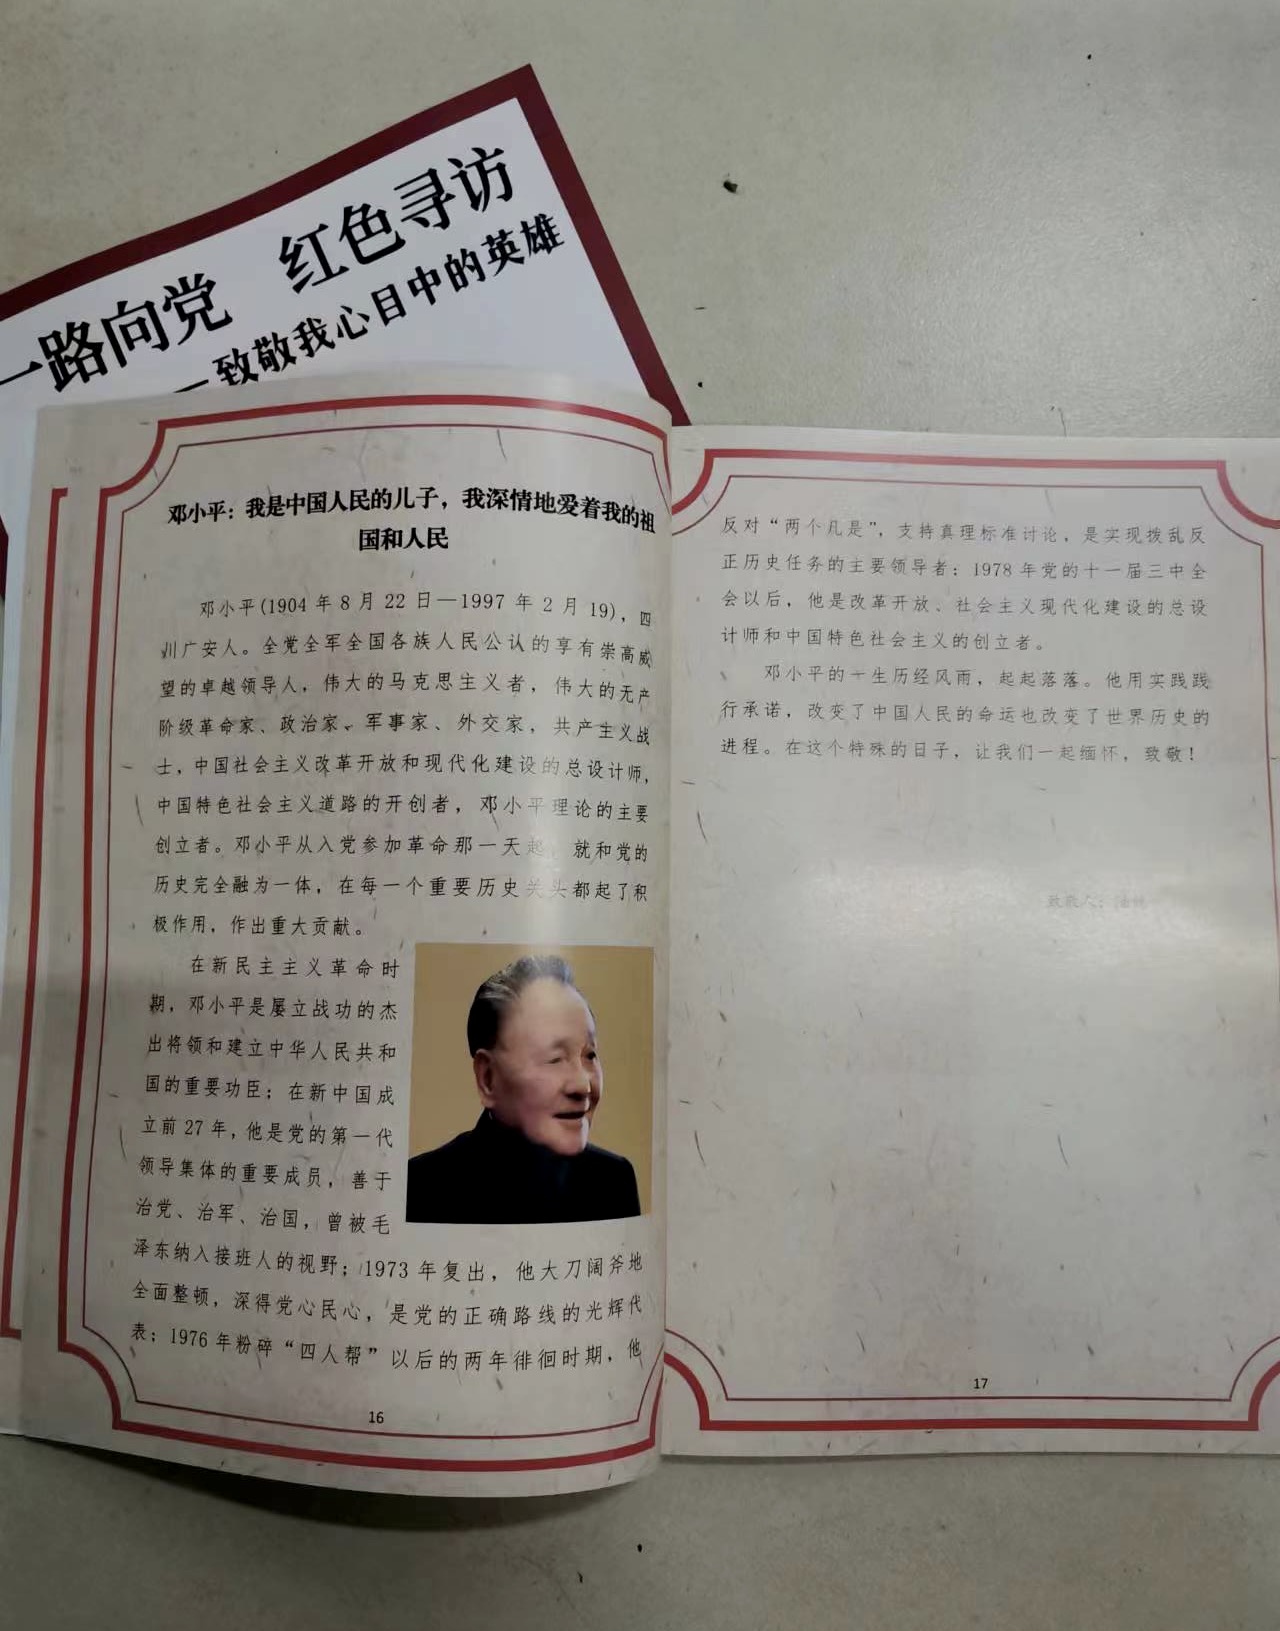 一路向党 红色寻访
—致敬我心目中的英雄
邓小平：我是中国人民的儿子，我深情地爱着我的祖
国和人民
邓小平(1904 年 8 月 22 日—1997 年 2 月 19)，四
川广安人。全党全军全国各族人民公认的享有崇高威
望的卓越领导人，伟大的马克思主义者，伟大的无产
阶级革命家、政治家、军事家、外交家，共产主义战
士，中国社会主义改革开放和现代化建设的总设计师，
中国特色社会主义道路的开创者，邓小平理论的主要
创立者。邓小平从入党参加革命那一天起，就和党的
历史完全融为一体，在每一个重要历史关头都起了积
极作用，作出重大贡献。
在新民主主义革命时
期，邓小平是屡立战功的杰
出将领和建立中华人民共和
国的重要功臣；在新中国成
立前 27 年，他是党的第一代
领导集体的重要成员，善于
治党、治军、治国，曾被毛
泽东纳入接班人的视野；1973 年复出，他大刀阔斧地
全面整顿，深得党心民心，是党的正确路线的光辉代
表；1976 年粉碎“四人帮”以后的两年徘徊时期，他
16
反对“两个凡是”，支持真理标准讨论，是实现拨乱反
正历史任务的主要领导者；1978 年党的十一届三中全
会以后，他是改革开放、社会主义现代化建设的总设
计师和中国特色社会主义的创立者。
邓小平的一生历经风雨，起起落落。他用实践践
行承诺，改变了中国人民的命运也改变了世界历史的
进程。在这个特殊的日子，让我们一起缅怀，致敬！
致敬人：
17